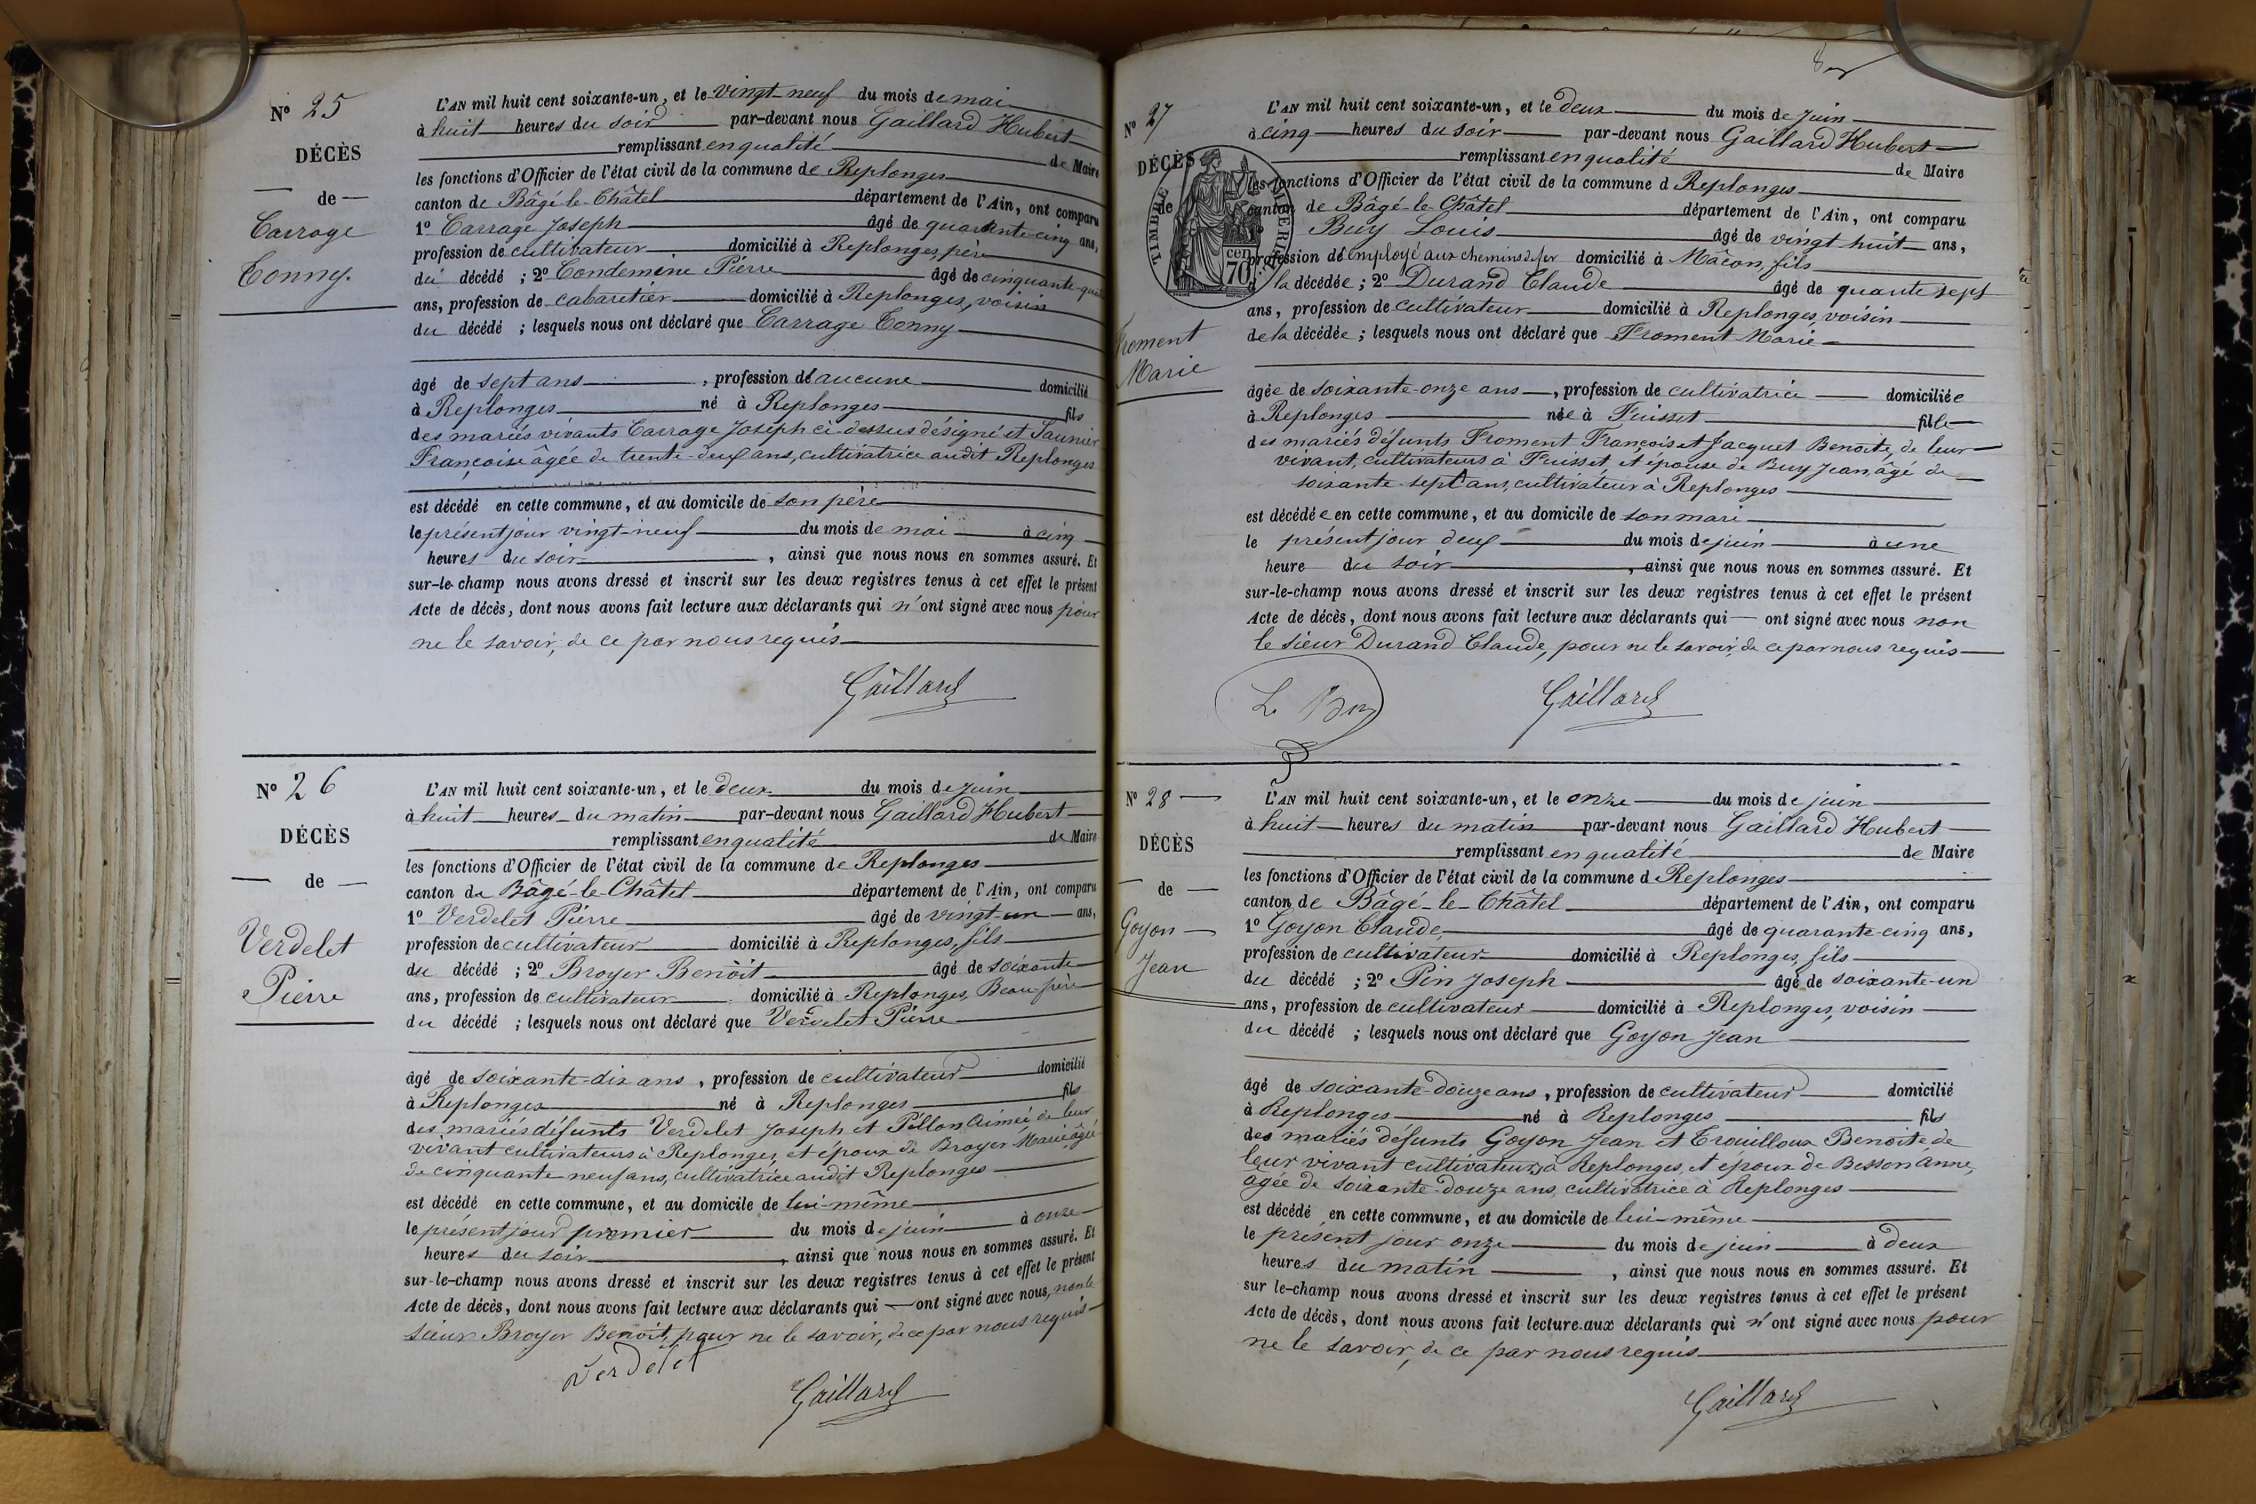 N° 25
DÉCÈS
de
Carrage
Tonny.
L'AN mil huit cent soixante-un, et le vingt-neuf du mois de mai
à huit heures du soir par-devant nous Gaillard Hubert
remplissant en qualité de Maire
les fonctions d'Officier de l'état civil de la commune de Replonges
canton de Bâgé-le-Châtel département de l'Ain, ont comparu
1° Carrage Joseph âgé de quarante-cinq ans,
profession de cultivateur domicilié à Replonges, père
du décédé ; 2° Condemine Pierre âgé de cinquante-
ans, profession de cabaretier domicilié à Replonges, voisin
du décédé ; lesquels nous ont déclaré que Carrage Tonny
âgé de sept ans, profession de aucune domicilié
à Replonges né à Replonges fils
des mariés vivants Carrage Joseph ci-dessus désigné et Saunier
Françoise âgée de trente-deux ans, cultivatrice audit Replonges
est décédé en cette commune, et au domicile de son père
le présent jour vingt-neuf du mois de mai à cinq
heures du soir, ainsi que nous nous en sommes assuré. Et
sur-le-champ nous avons dressé et inscrit sur les deux registres tenus à cet effet le présent
Acte de décès, dont nous avons fait lecture aux déclarants qui n'ont signé avec nous pour
ne le savoir, de ce par nous requis
Gaillard
N° 26
DÉCÈS
de
Verdelet
Pierre
L'AN mil huit cent soixante-un, et le deux du mois de juin
à huit heures du matin par-devant nous Gaillard Hubert
remplissant en qualité de Maire
les fonctions d'Officier de l'état civil de la commune de Replonges
canton de Bâgé-le-Châtel département de l'Ain, ont comparu
1° Verdelet Pierre âgé de vingt-un ans,
profession de cultivateur domicilié à Replonges, fils
du décédé ; 2° Broyer Benoit âgé de soixante
ans, profession de cultivateur domicilié à Replonges, Beau-frère
du décédé ; lesquels nous ont déclaré que Verdelet Pierre
âgé de soixante-dix ans, profession de cultivateur domicilié
à Replonges né à Replonges fils
des mariés défunts Verdelet Joseph et Pillon Aimée, de leur
vivant cultivateurs à Replonges, et époux de Broyer Marie, âgée
de cinquante neuf ans, cultivatrice audit Replonges
est décédé en cette commune, et au domicile de lui-même
le présent jour premier du mois de juin à onze
heures du soir, ainsi que nous nous en sommes assuré. Et
sur-le-champ nous avons dressé et inscrit sur les deux registres tenus à cet effet le présent
Acte de décès, dont nous avons fait lecture aux déclarants qui ont signé avec nous, non le
sieur Broyer Benoit, pour ne le savoir, de ce par nous requis
Verdelet
Gaillard
N° 27
DÉCÈS
de
Froment
Marie
TIMBRE IMPERIAL
70 cen
L'AN mil huit cent soixante-un, et le deux du mois de juin
à cinq heures du soir par-devant nous Gaillard Hubert
remplissant en qualité de Maire
les fonctions d'Officier de l'état civil de la commune d Replonges
canton de Bâgé-le-Châtel département de l'Ain, ont comparu
Buy Louis âgé de vingt huit ans,
profession de employé aux chemins de fer domicilié à Mâcon, fils
la décédée ; 2° Durand Claude âgé de quarante sept
ans, profession de cultivateur domicilié à Replonges, voisin
de la décédée ; lesquels nous ont déclaré que Froment Marie
âgée de soixante-onze ans, profession de cultivatrice domiciliée
à Replonges née à Fuisset fille
des mariés défunts Froment François et Jacquet Benoite, de leur
vivant, cultivateurs à Fuisset, et épouse de Buy Jean âgé de
soixante-sept ans, cultivateur à Replonges
est décédée en cette commune, et au domicile de son mari
le présent jour deux du mois de juin à une
heure du soir, ainsi que nous nous en sommes assuré. Et
sur-le-champ nous avons dressé et inscrit sur les deux registres tenus à cet effet le présent
Acte de décès, dont nous avons fait lecture aux déclarants qui ont signé avec nous non
le sieur Durand Claude, pour ne le savoir, de ce par nous requis
L Buy
Gaillard
N° 28
DÉCÈS
de
Goyon
Jean
L'AN mil huit cent soixante-un, et le onze du mois de juin
à huit heures du matin par-devant nous Gaillard Hubert
remplissant en qualité de Maire
les fonctions d'Officier de l'état civil de la commune d Replonges
canton de Bâgé-le-Châtel département de l'Ain, ont comparu
1° Goyon Claude, âgé de quarante-cinq ans,
profession de cultivateur domicilié à Replonges, fils
du décédé ; 2° Pin Joseph âgé de soixante-un
ans, profession de cultivateur domicilié à Replonges, voisin
du décédé ; lesquels nous ont déclaré que Goyon Jean
âgé de soixante-douze ans, profession de cultivateur domicilié
à Replonges né à Replonges fils
des mariés défunts Goyon Jean et Trouilloux Benoite de
leur vivant cultivateurs à Replonges, et époux de Besson Anne,
âgée de soixante-douze ans, cultivatrice à Replonges
est décédé en cette commune, et au domicile de lui-même
le présent jour onze du mois de juin à deux
heures du matin, ainsi que nous nous en sommes assuré. Et
sur le-champ nous avons dressé et inscrit sur les deux registres tenus à cet effet le présent
Acte de décès, dont nous avons fait lecture aux déclarants qui n'ont signé avec nous pour
ne le savoir, de ce par nous requis
Gaillard